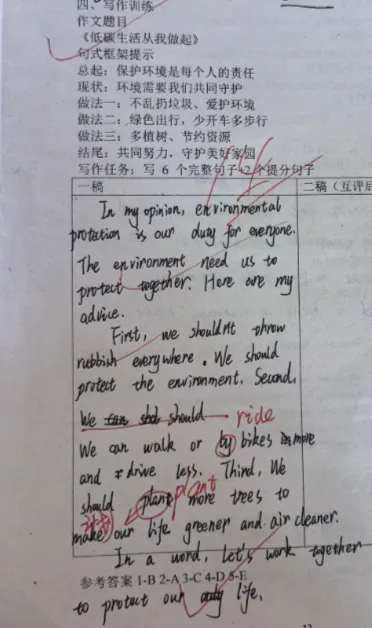 四、写作训练
作文题目
《低碳生活从我做起》
句式框架提示
总起：保护环境是每个人的责任
现状：环境需要我们共同守护
做法一：不乱扔垃圾、爱护环境
做法二：绿色出行，少开车多步行
做法三：多植树、节约资源
结尾：共同努力，守护美好家园
写作任务：写 6 个完整句子+2个提分句子
一稿 二稿（互评后
In my opinion, environmental
protation is our duty for everyone.
The environment need us to
protect together. Here are my
advice.
First, we shouldn't throw
rubbish everywhere. We should
protect the environment. Second,
We should
ride
We can walk or by bikes more
and drive less. Third, We
should plant more trees to
plant
make our life greener and air cleaner.
In a word, let's work together
参考答案 1-B 2-A 3-C 4-D 5-E
to protect our life.